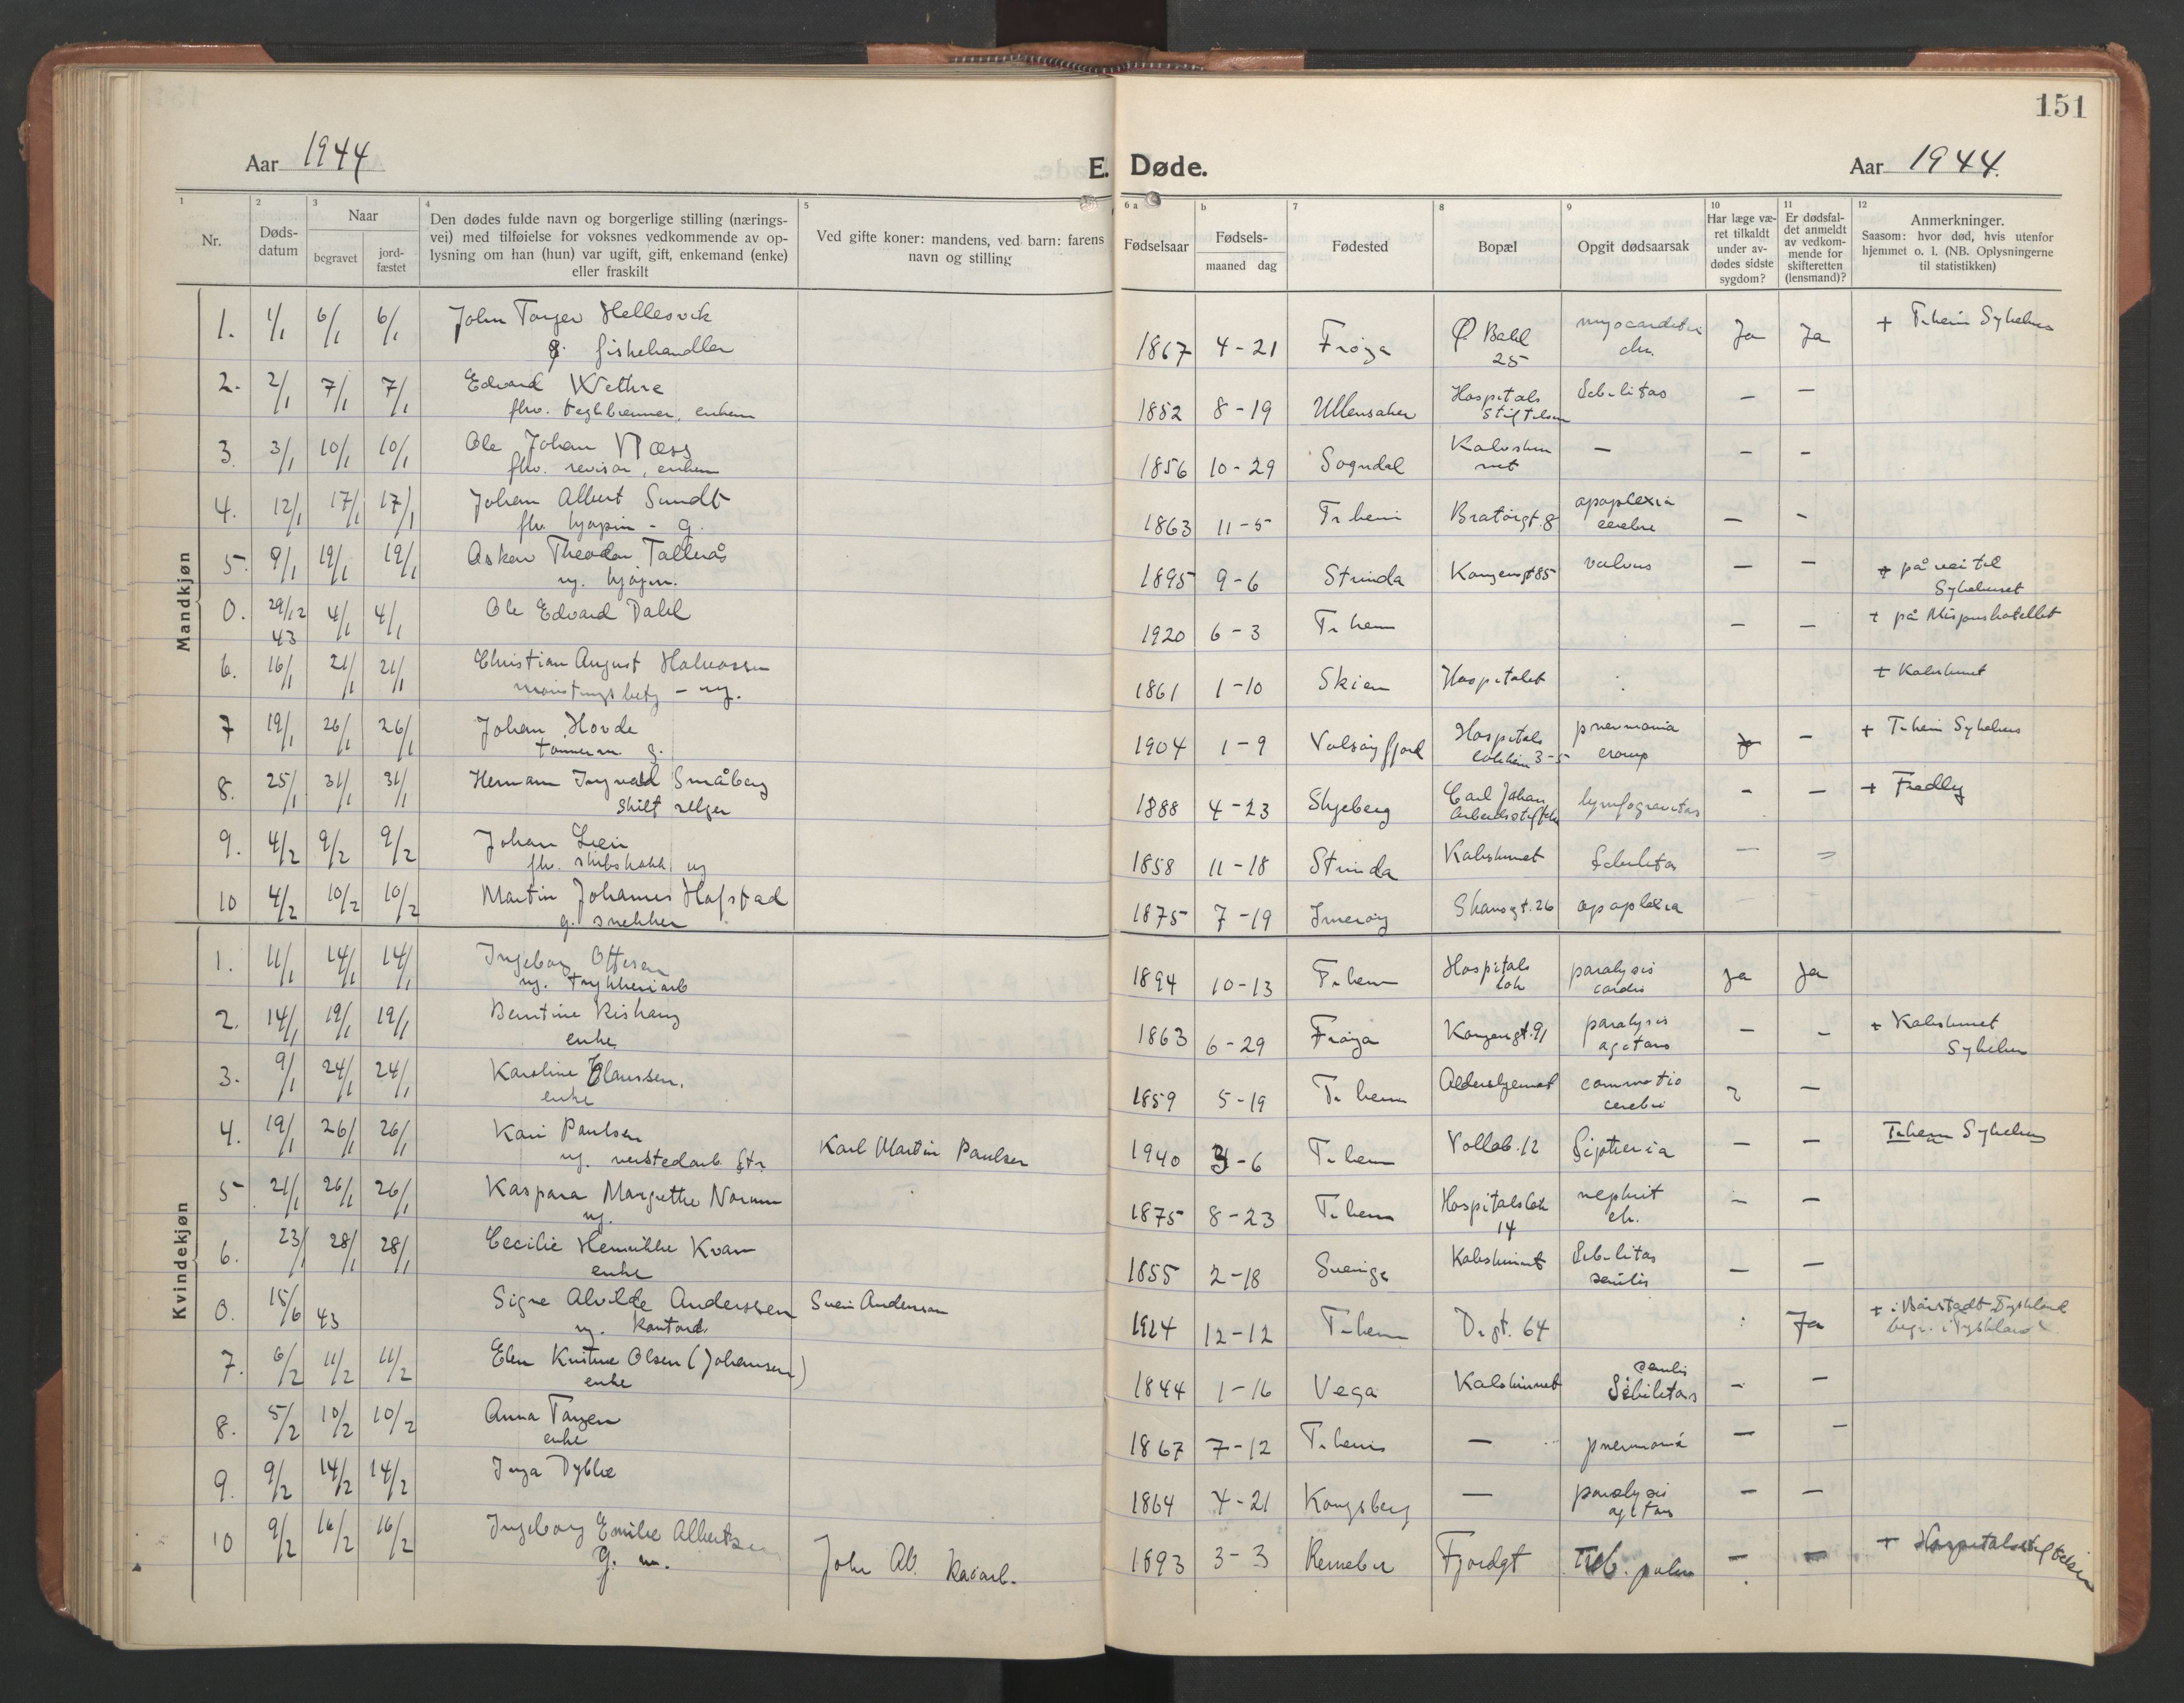 151
Aar 1944
E. Døde.
Aar 1944.
1
Nr.
2
Døds-
datum
3
Naar
begravet
jord-
fæstet
4
Den dødes fulde navn og borgerlige stilling (nærings-
vei) med tilføielse for voksnes vedkommende av op-
lysning om han (hun) var ugift, gift, enkemand (enke)
eller fraskilt
5
Ved gifte koner: mandens, ved barn: farens
navn og stilling
6 a
Fødselsaar
b
Fødsels-
maaned dag
7
Fødested
8
Bopæl
9
Opgit dødsaarsak
10
Har læge væ-
ret tilkaldt
under av-
dødes sidste
sygdom?
11
Er dødsfal-
det anmeldt
av vedkom-
mende for
skifteretten
(lensmand)?
12
Anmerkninger.
Saasom: hvor død, hvis utenfor
hjemmet o. l. (NB. Oplysningerne
til statistikken)
Mandkjøn
1. 1/1 6/1 6/1 John Torger Hellesvik 1867 4-21 Frøya Ø Bakl myocarditis Ja Ja + Tr.heim Sykehus
g. fiskehandler 25 chr.
2. 2/1 7/1 7/1 Edvard Wethre 1852 8-19 Ullensaker Hospitals Debilitas — —
fhv. teglbrenner, enkem Stiftelsen
3. 3/1 10/1 10/1 Ole Johan Næss 1856 10-29 Sogndal Kalvskin — — —
fhv. revisor, enkem net
4. 12/1 17/1 17/1 Johan Albert Sundt 1863 11-5 Tr.heim Bratørgt. 8 apoplexia — —
fhv. kjøpm - g. cerebri
5. 9/1 19/1 19/1 Oskar Theodor Tallerås 1895 9-6 Strinda Kongensgt 85 volvus — — + på vei til
ug. kjøpm. Sykehuset
0. 29/12 4/1 4/1 Ole Edvard Dahl 1920 6-3 Tr.heim — — + på Misjonshotellet
43
6. 16/1 21/1 21/1 Christian August Halvorsen 1861 1-10 Skien Hospitalet + Kalvskinnet
- ug.
7 19/1 26/1 26/1 Johan Hovde 1904 1-9 Valsøyfjord Hospitals pneumonia Ja — + Tr.heim Sykehus
tømmerm. g. løkken 3-5 croup
8. 25/1 31/1 31/1 Herman Ingvald Småberg 1888 4-23 Skjeberg Carl Johan — — + Fredly
skilt selger Arbeidsstiftelse
9. 4/2 9/2 9/2 Johan Lien 1858 11-18 Strinda Kalvskinnet Debilitas — —
fhv. skibskokk ug
10 4/2 10/2 10/2 Martin Johannes Hofstad 1875 7-19 Inderøy Skansgt. 26 apoplexia
g. snekker
Kvindekjøn
1. 11/1 14/1 14/1 Ingeborg Ottesen 1894 10-13 Tr.heim Hospitals paralysis Ja Ja
ug. trykkeriarb løk cordis
2. 14/1 19/1 19/1 Berntine Rishaug 1863 6-29 Frøya Kongensgt. 91 paralysis — — + Kalvskinnet
enke agitans Sykehus
3. 9/1 24/1 24/1 Karoline Claussen. 1859 5-19 Tr.heim Aldershjemmet commotio —
enke cerebri
4. 19/1 26/1 26/1 Kari Paulsen Karl Martin Paulsen 1940 3-6 Tr.heim Vollab. 12 Difteria — — Tr.heim Sykehus
ug. verstedarb. dtr
5 21/1 26/1 26/1 Kaspara Margrethe Normm 1875 8-23 Tr.heim Hospitalsløk nephrit — —
ug. 14 chr.
6. 23/1 28/1 28/1 Cecilie Henrikke Kvam 1855 2-18 Sverige Kalvskinnet Debilitas — —
enke senilis
0. 15/6 43 Signe Alvilde Anderssen Svein Andersson 1924 12-12 Tr.heim D.gt. 64 Ja + i Tyskland
ug. kontord. begr. i Tyskland
7. 6/2 11/2 11/2 Elen Kristine Olsen (Johansen) 1844 1-16 Vega Kalvskinnet senilis — —
enke Debilitas
8. 5/2 10/2 10/2 Anna Torgersen 1867 7-12 Tr.heim — pneumonia — —
enke
9. 9/2 14/2 14/2 Inga Dybhe 1864 4-21 Kongsberg — paralysis — —
agitans
10 9/2 16/2 16/2 Ingeborg Emilie Albertsen John Ab. kaiarb. 1893 3-3 Rennebu Fjordgt Tub. pulm — — + Hospitalsstiftelsen
g. m.